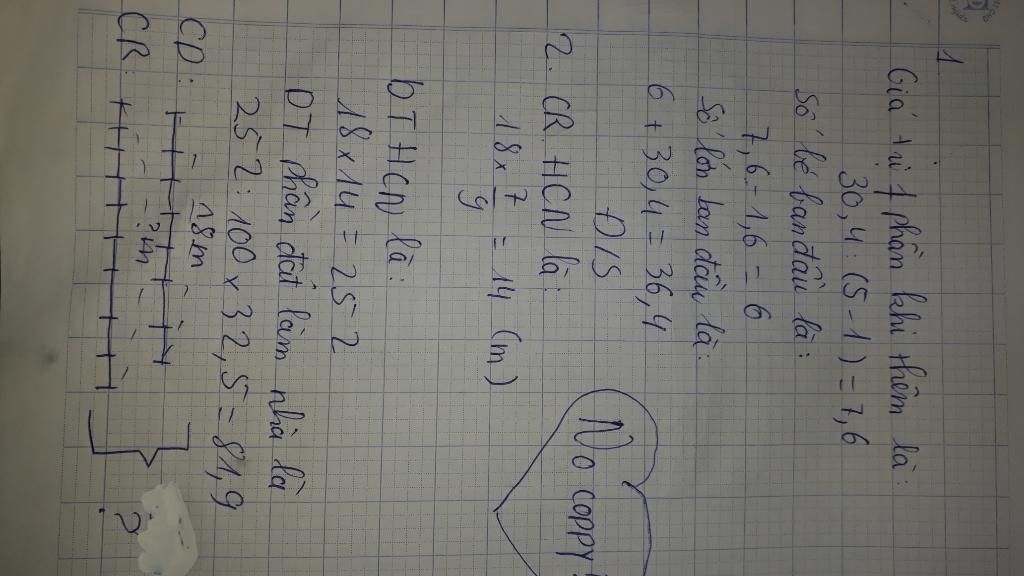 1
Giá trị 1 phần khi thêm là:
30,4 : (5 - 1) = 7,6
Số bé ban đầu là:
7,6 - 1,6 = 6
Số lớn ban đầu là:
6 + 30,4 = 36,4
Đ/S
2. CR HCN là:
18 x 7/9 = 14 (m)
DT HCN là:
18 x 14 = 252
DT phần đất làm nhà là
252 : 100 x 32,5 = 81,9
CD:
18m
CR:
?m
?
No coppy